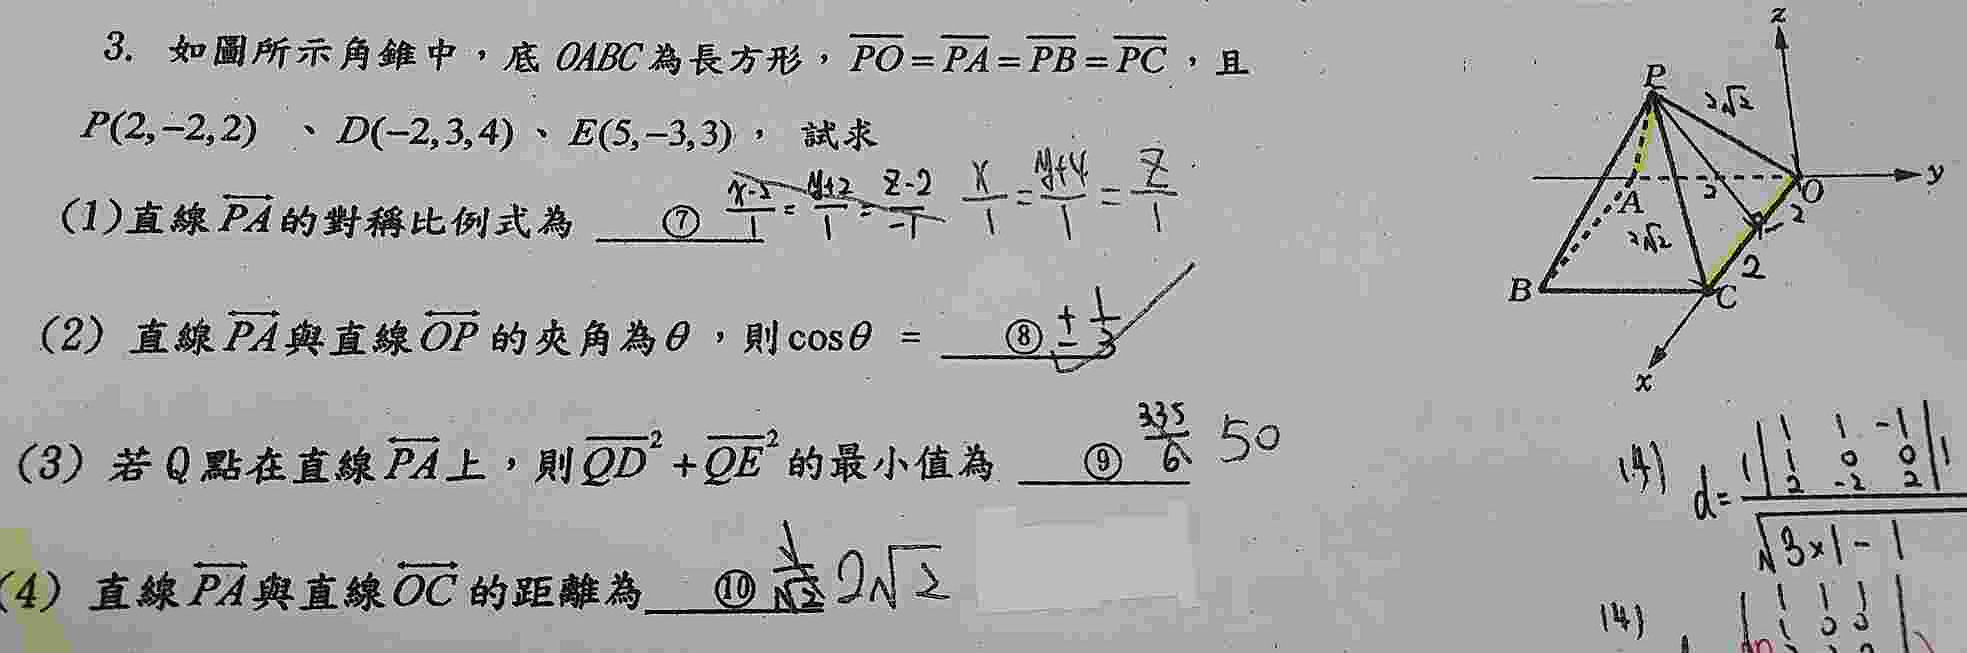 3. 如圖所示角錐中，底 OABC 為長方形，PO = PA = PB = PC，且
P(2,−2,2) 、D(−2,3,4)、E(5,−3,3)， 試求
(1)直線 PA 的對稱比例式為 ⑦ x-2/1 = y+2/1 = z-2/-1 x/1 = y+4/1 = z/1
(2) 直線 PA 與直線 OP 的夾角為 θ，則 cos θ = ⑧ ± 1/3
(3) 若 Q 點在直線 PA 上，則 QD² + QE² 的最小值為 ⑨ 335/6 50
(4) 直線 PA 與直線 OC 的距離為 ⑩ 1/√2 2√2
z
P
2√2
y
O
A
2
2
2√2
2
B
C
x
(4) d = | | 1 1 -1
1 0 0
2 -2 2 | |
√3×1-1
(4)
1 1 1
1 0 0